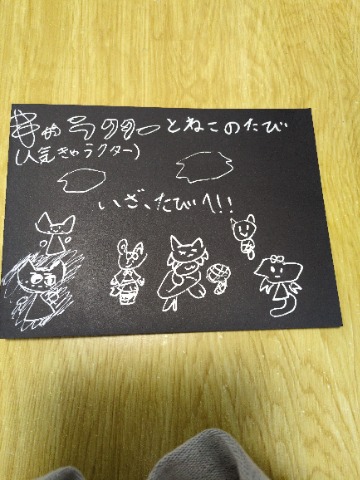 キャラクターとねこのたび
(人気きゃラクター)
いざ、たびへ!!